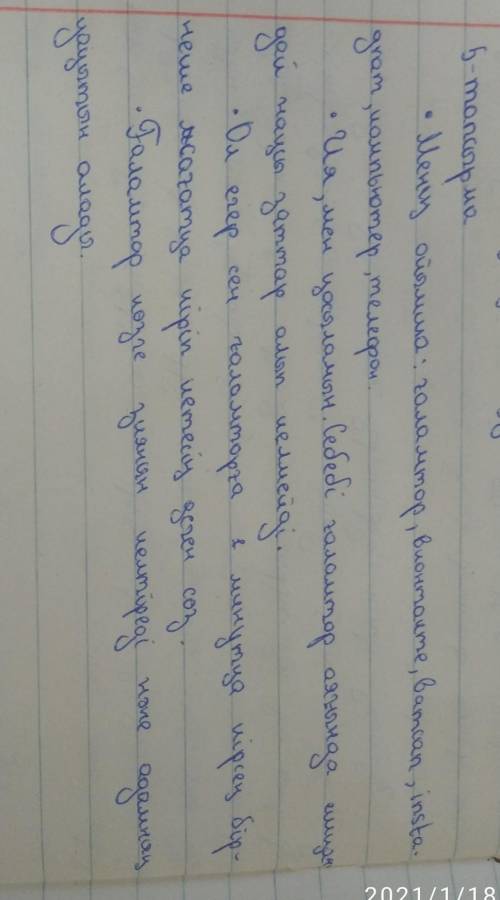 5-тапсырма
• Менің ойымша: ғаламтор, вконтакте, ватсап, insta-
грам, компьютер, телефон.
• Ия, мен қосыламын. Себебі ғаламтор аясында ешқан
дай нақты заттар алып келмейді.
• Ол егер сен ғаламторға 1 минутқа кірсең бір-
неше сағатқа кіріп кетесің деген сөз.
• Ғаламтор көзге зиянын келтіреді және адамның
уақытын алады.
2021/1/18